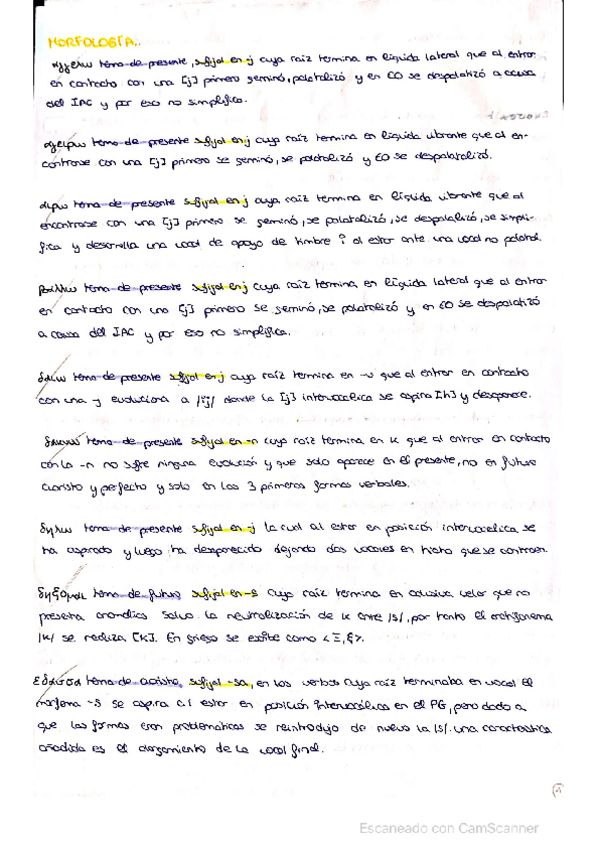 MORFOLOGÍA..
αγγελω tema de presente, sufijal en -j cuya raíz termina en líquida lateral que al entrar
en contacto con una [j] primero geminó, palatalizó y en EO se despalatizó a causa
del IAC y por eso no simplifica.
αγειρω tema de presente sufijal en j cuya raíz termina en líquida vibrante que al en-
contrarse con una [j] primero se geminó, se palatalizó y EO se despalatalizó.
αιρω tema de presente sufijal en j cuya raíz termina en líquida vibrante que al
encontrarse con una [j] primero se geminó, se palatalizó, se despalalizó, se simpli-
fica y desarrolla una vocal de apoyo de timbre i al estar ante una vocal no palatal.
βαλλω tema de presente sufijal en j cuya raíz termina en líquida lateral que al entrar
en contacto con una [j] primero se geminó, se palatalizó y en EO se despalatizó
a causa del IAC y por eso no simplifica.
tema de presente sufijal en j cuya raíz termina en -υ que al entrar en contacto
con una -j evoluciona a donde la [j] intervocálica se aspira [h] y desaparece.
tema de presente sufijal en -n cuya raíz termina en κ que al entrar en contacto
con la -n no sufre ninguna evolución y que solo aparece en el presente, no en futuro
aoristo y perfecto y solo en las 3 primeras formas verbales.
δηλω tema de presente sufijal en -j la cual al estar en posición intervocálica se
ha aspirado y luego ha desaparecido dejando dos vocales en hiato que se contraen.
δηξομαι tema de futuro sufijal en -s cuya raíz termina en oclusiva velar que no
presenta anomalías salvo la neutralización de κ ante /s/, por tanto el archifonema
/k/ se realiza [k]. En griego se escribe como <Ξ, ξ>.
tema de aoristo, sufijal -sa, en los verbos cuya raíz terminaba en vocal el
morfema -s se aspira al estar en posición intervocálica en el PG, pero dado a
que las formas eran problemáticas se reintrodujo de nuevo la /s/. una característica
añadida es el alargamiento de la vocal final.
Escaneado con CamScanner